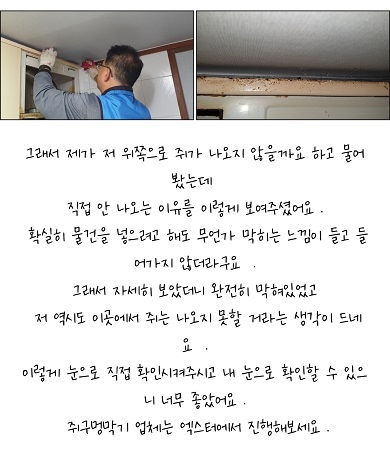 그래서 제가 저 위쪽으로 쥐가 나오지 않을까요 하고 물어
봤는데
직접 안 나오는 이유를 이렇게 보여주셨어요 .
확실히 물건을 넣으려고 해도 무언가 막히는 느낌이 들고 들
어가지 않더라구요 .
그래서 자세히 보았더니 완전히 막혀있었고
저 역시도 이곳에서 쥐는 나오지 못할 거라는 생각이 드네
요 .
이렇게 눈으로 직접 확인시켜주시고 내 눈으로 확인할 수 있으
니 너무 좋았어요 .
쥐구멍막기 업체는 엑스터에서 진행해보세요 .